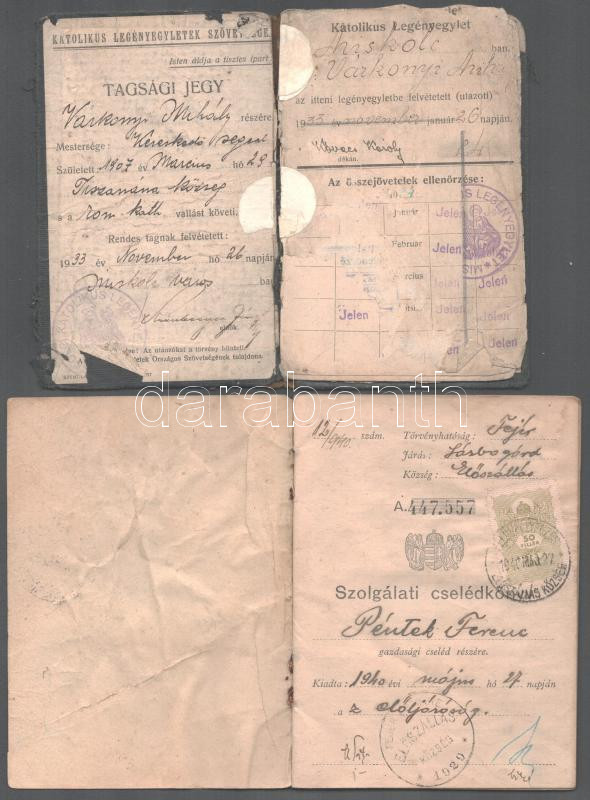 KATOLIKUS LEGÉNYEGYLETEK SZÖVETSÉGE
Isten áldja a tisztes ipart
TAGSÁGI JEGY
Várkonyi Mihály részére
Mestersége: Kereskedő segéd
Született 1907 év Marcius hó 29
Tiszanána község
s a rom. kath. vallást követi.
Rendes tagnak felvétetett:
1933 év November hó 26 napján
Miskolc város ba
elnök.
Az utánzókat a törvény bünteti
Országos Szövetségének tulajdona.
Katolikus Legényegylet
Miskolc ban.
Várkonyi
az itteni legényegyletbe felvétetett (utazott)
1933 év november január 26 napján.
Kovács Károly
dékán.
Az összejövetelek ellenőrzése:
Január Jelen
Február Jelen
Jelen
Jelen Jelen
Jelen Jelen
KATOLIKUS LEGÉNYEGYLET
darabanth
12/1940. szám.
Törvényhatóság: Fejér
Járás: Sárbogárd
Község: Előszállás
A. 447.557
50
FILLÉR
1940 MÁJ 27
Szolgálati cselédkönyv
Péntek Ferenc
gazdasági cseléd részére.
Kiadta: 1940 évi május hó 27 napján
a z elöljáróság.
ELŐSZÁLLÁS
KÖZSÉG
* 1929 *